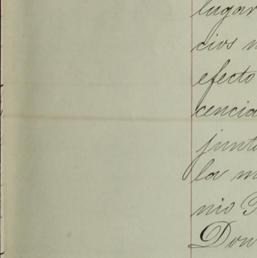 lugar
cios
efecto
cencia
junto
la
nio
Don